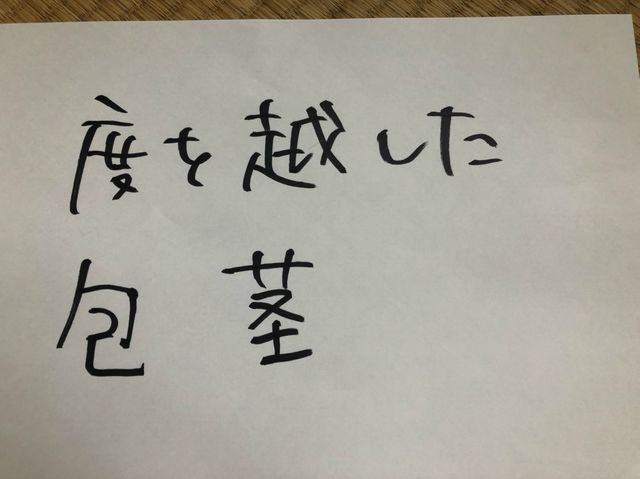 度を越した
包茎